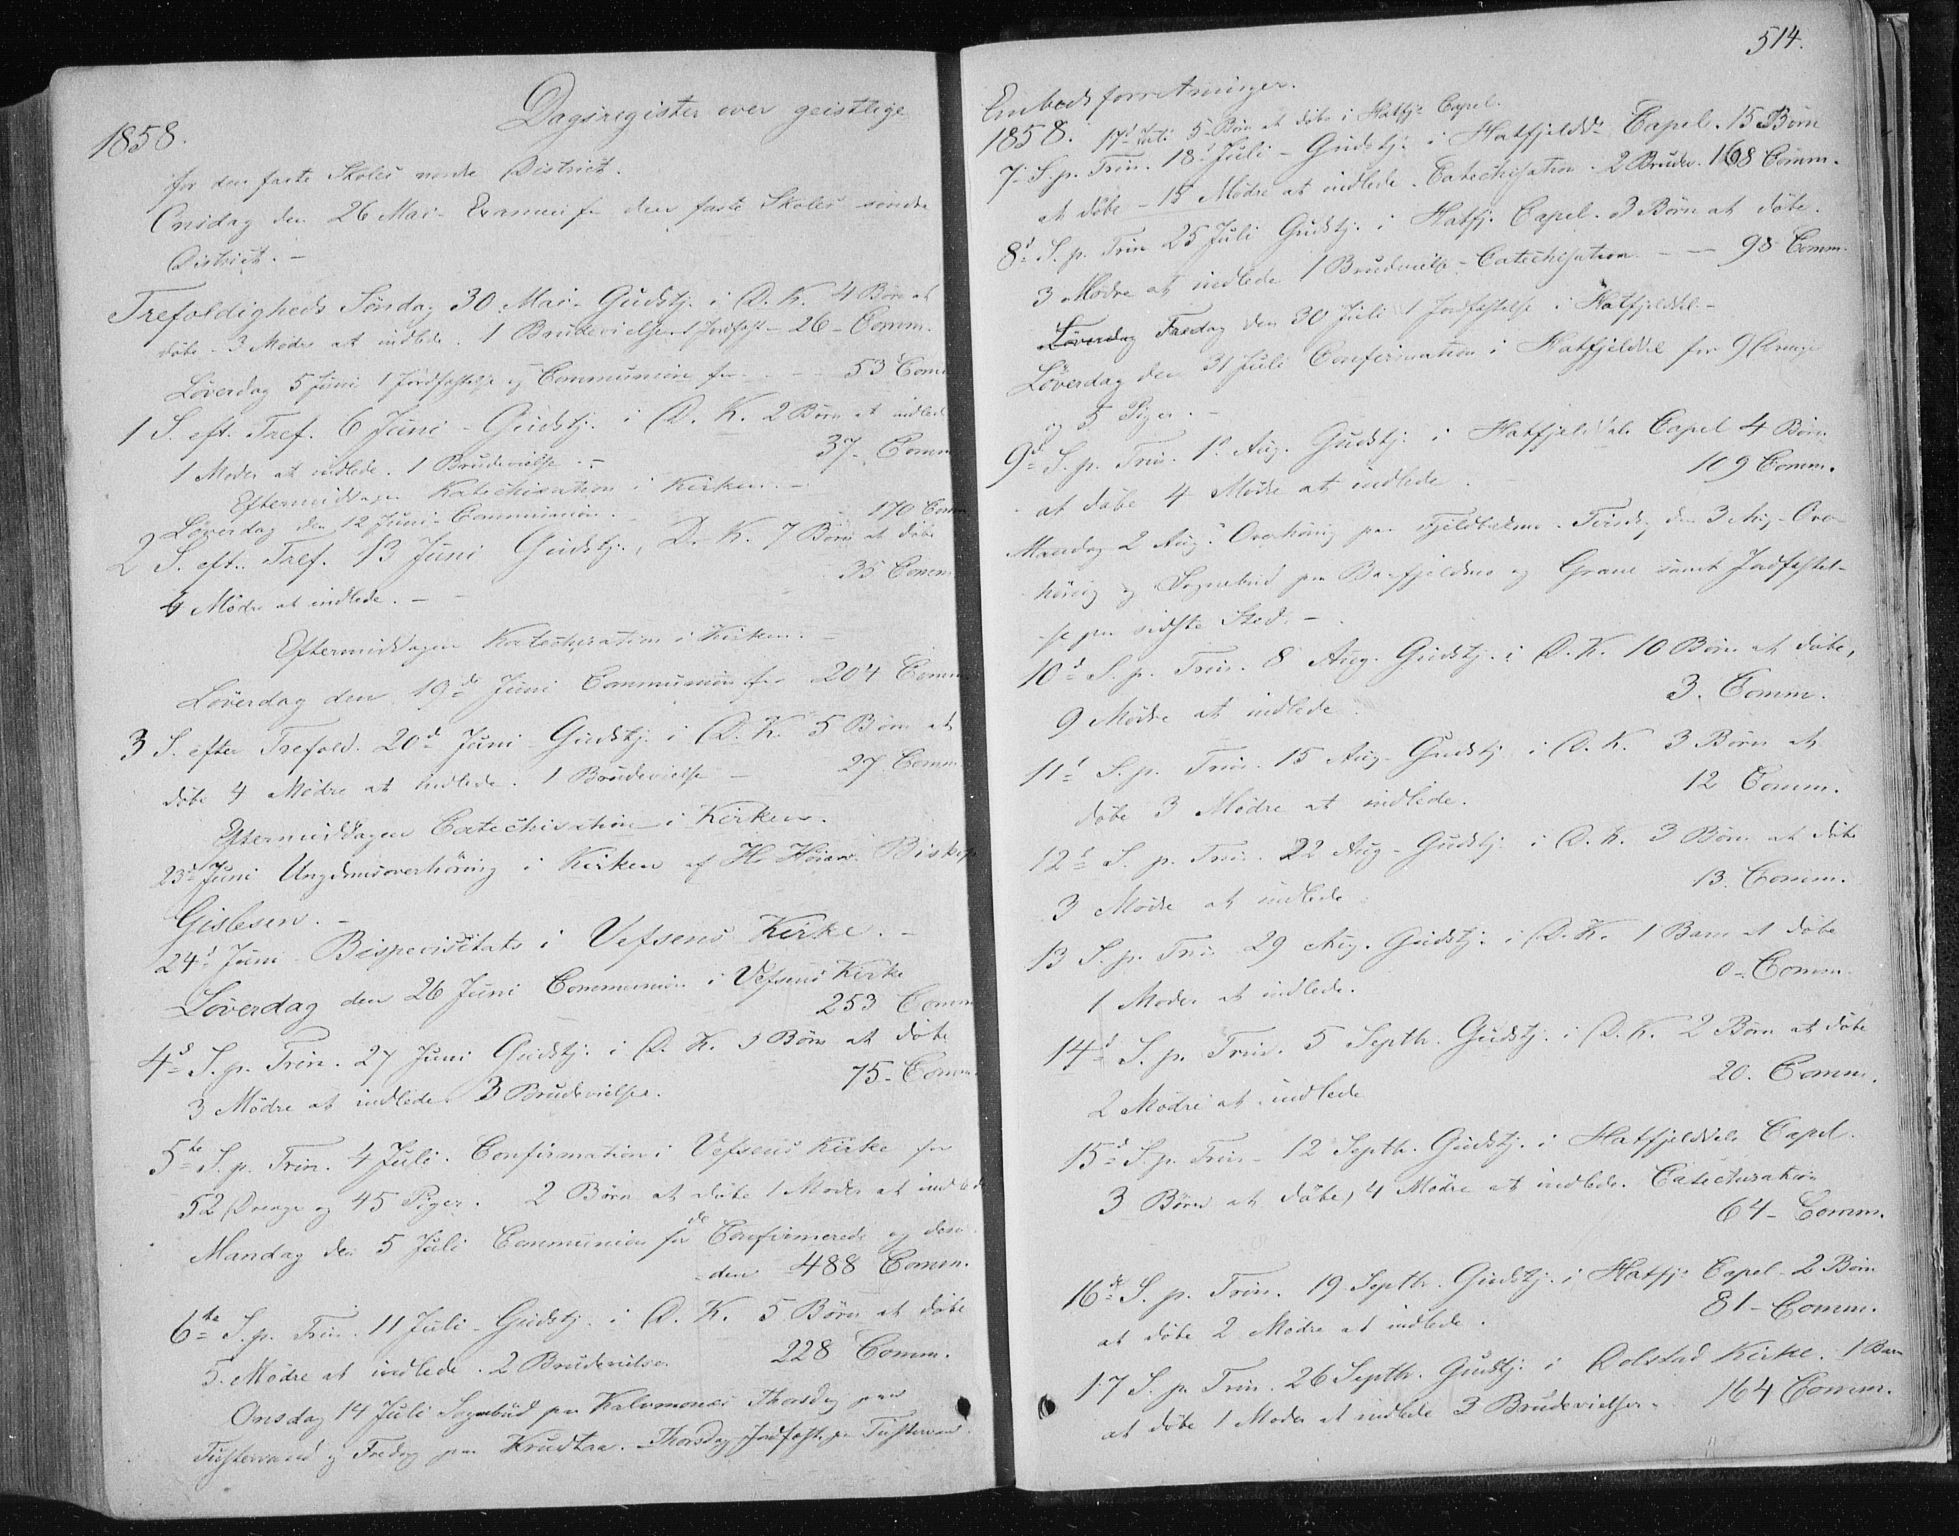 Dagsregister over geistlige
1858.
for den faste Skoles nordre District.
Onsdag den 26 Mai- Examen f. den faste Skoles søndre
District. -
Trefoldigheds Søndag 30 Mai- Gudstj. i D. K. 4 Børn at
døbe - 3 Mødre at indlede. 1 Brudevielse. 1 Jordfæst - 26 - Comm.
Løverdag 5 Juni 1 Jordfæstelse og Communion for - - - 53 Comm
1 S. eft. Tref. 6 Juni - Gudstj. i D. K. 2 Børn at indlede
1 Moder at indlede. 1 Brudevielse - 37 - Comm
Eftermiddagen Katechisation i Kirken. -
Løverdag den 12 Juni - Communion. 170 Comm
2 S. eft. Tref. 13 Juni Gudstj. i D. K. 7 Børn at døbe
4 Mødre at indlede. - 35 Comm
Eftermiddagen Katechisation i Kirken. -
Løverdag den 19de Juni Communion for 204 Comm
3 S. efter Trefold. 20d Juni - Gudstj. i D. K. 5 Børn at
døbe 4 Mødre at indlede. 1 Brudevielse - 27 Comm
Eftermiddagen Catechisation i Kirken.
23d Juni Ungdmsoverhöring i Kirken af Hr. Biskop
Gislesen. -
24d Juni - Bispevisitats i Vefsens Kirke. -
Løverdag den 26 Juni Communion i Vefsens Kirke
253 Comm
4d S. p. Trin. 27 Juni Gudstj. i D. K. 3 Børn at døbe
3 Mødre at indlede 3 Brudevielser. 75 - Comm.
5te S. p. Trin. 4 Juli. Confirmation i Vefsens Kirke for
52 Drenge og 45 Piger. 2 Børn at døbe 1 Moder at indlede
Mandag den 5 Juli Communion for de Confirmerede og des-
den 488 Comm.
6te S. p. Trin. 11 Juli - Gudstj. i D. K. 5 Børn at døbe
5. Mødre at indlede. 2 Brudevielser. 228 Comm.
Onsdag 14 Juli Sognebud paa Thorsdag paa
Tustervand og Fredag paa Krudtaa. Thorsdag Jordfæst. paa Tustervand.
514.
Embedsforretninger.
1858. 17d Juli 5 Børn at døbe i Hatfj: Capel.
7 - S. p. Trin. 18d Juli - Gudstj. i Hatfjeldd. Capel. 15 Børn
at døbe - 15 Mødre at indlede. Catechisation - 2 Brudev. 168 Comm.
8d S. p. Trin 25 Juli Gudstj. i Hatfj. Capel. 3 Børn at døbe.
3 Mødre at indlede 1 Brudevielse - Catechisation - - 98 Comm.
Løverdag Fredag den 30 Juli 1 Jordfæstelse i Hatfjeldd. -
Løverdag den 31 Juli Confirmation i Hatfjelddal for 9 Drenge
og 5 Piger. -
9d S. p. Trin. 1d Aug. Gudstj. i Hatfjelddals Capel 4 Børn
at døbe 4 Mødre at indlede. 109 Comm.
Mandag 2 Aug. Overhöring paa - Tirsdag den 3 Aug - Over-
höring og Sognebud paa og Grane samt Jordfæstel-
se paa sidste Sted. -
10d S. p. Trin. 8 Aug. Gudstj. i D. K. 10 Børn at døbe,
9 Mødre at indlede 3. Comm.
11d S. p. Trin. 15 Aug. Gudstj. i D. K. 3 Børn at
døbe 3 Mødre at indlede. 12 Comm.
12d S. p. Trin. 22 Aug - Gudstj. i D. K. 3 Børn at døbe
3 Mødre at indlede. 13. Comm.
13 S. p. Trin. 29 Aug. Gudstj. i D. K. 1 Barn at døbe
1 Moder at indlede. 0 - Comm.
14d S. p. Trin. 5 Septbr. Gudstj. i D. K. 2 Børn at døbe
2 Mødre at indlede 20. Comm.
15d S. p. Trin - 12 Septbr. Gudstj. i Hatfjelddals Capel.
3 Børn at døbe, 4 Mødre at indlede. Catechisation
64 - Comm.
16de S. p. Trin. 19 Septbr. Gudstj. i Hatfj: Capel - 2 Børn
at døbe 2 Mødre at indlede. 81 - Comm.
17 S. p. Trin. 26 Septbr. Gudstj. i Dolstad Kirke. 1 Barn
at døbe 1 Moder at indlede 3 Brudevielser. 164 Comm.